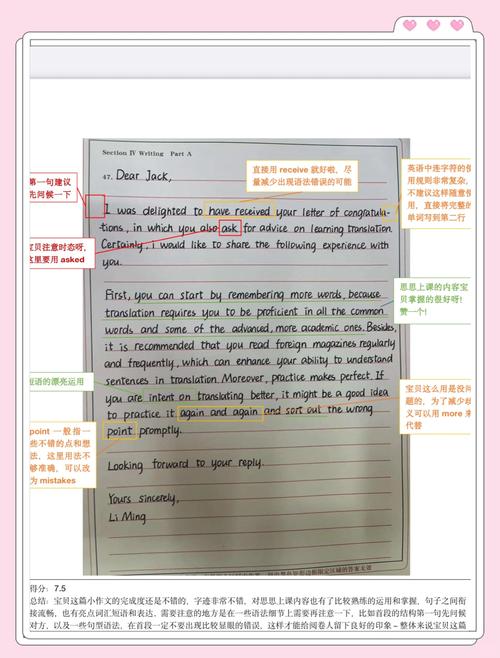 Section IV Writing Part A
47. Dear Jack,
直接用 receive 就好啦，尽
量减少出现语法错误的可能
英语中连字符的使
用规则非常复杂，
不建议这样随意使
用，直接将完整的
单词写到第二行
第一句建议
先问候一下
I was delighted to have received your letter of congratula-
tions, in which you also ask for advice on learning translation.
Certainly, I would like to share the following experience with
you.
宝贝注意时态呀，
这里要用 asked
思思上课的内容宝
贝掌握的很好呀!
赞一个!
First, you can start by remembering more words, because
translation requires you to be proficient in all the common
words and some of the advanced, more academic ones. Besides,
it is recommended that you read foreign magazines regularly
and frequently, which can enhance your ability to understand
sentences in translation. Moreover, practice makes perfect. If
you are intent on translating better, it might be a good idea
to practice it again and again and sort out the wrong
point promptly.
短语的漂亮运用
宝贝这么用是没问
题的，为了减少歧
义可以用 more 来
代替
point 一般指一
些不错的点和想
法，这里用法不
够准确，可以改
为 mistakes
Looking forward to your reply.
Yours sincerely,
Li Ming
出黑色矩形边框限定区域的答案无效
得分：7.5
总结：宝贝这篇小作文的完成度还是不错的，字迹非常不错，对思思上课内容也有了比较熟练的运用和掌握，句子之间衔
接流畅，也有亮点词汇短语和表达，需要注意的地方是在一些语法细节上需要再注意一下，比如首段的结构第一句先问候
对方，以及一些句型语法，在首段一定不要出现比较显眼的错误，这样才能给阅卷人留下良好的印象～整体来说宝贝这篇